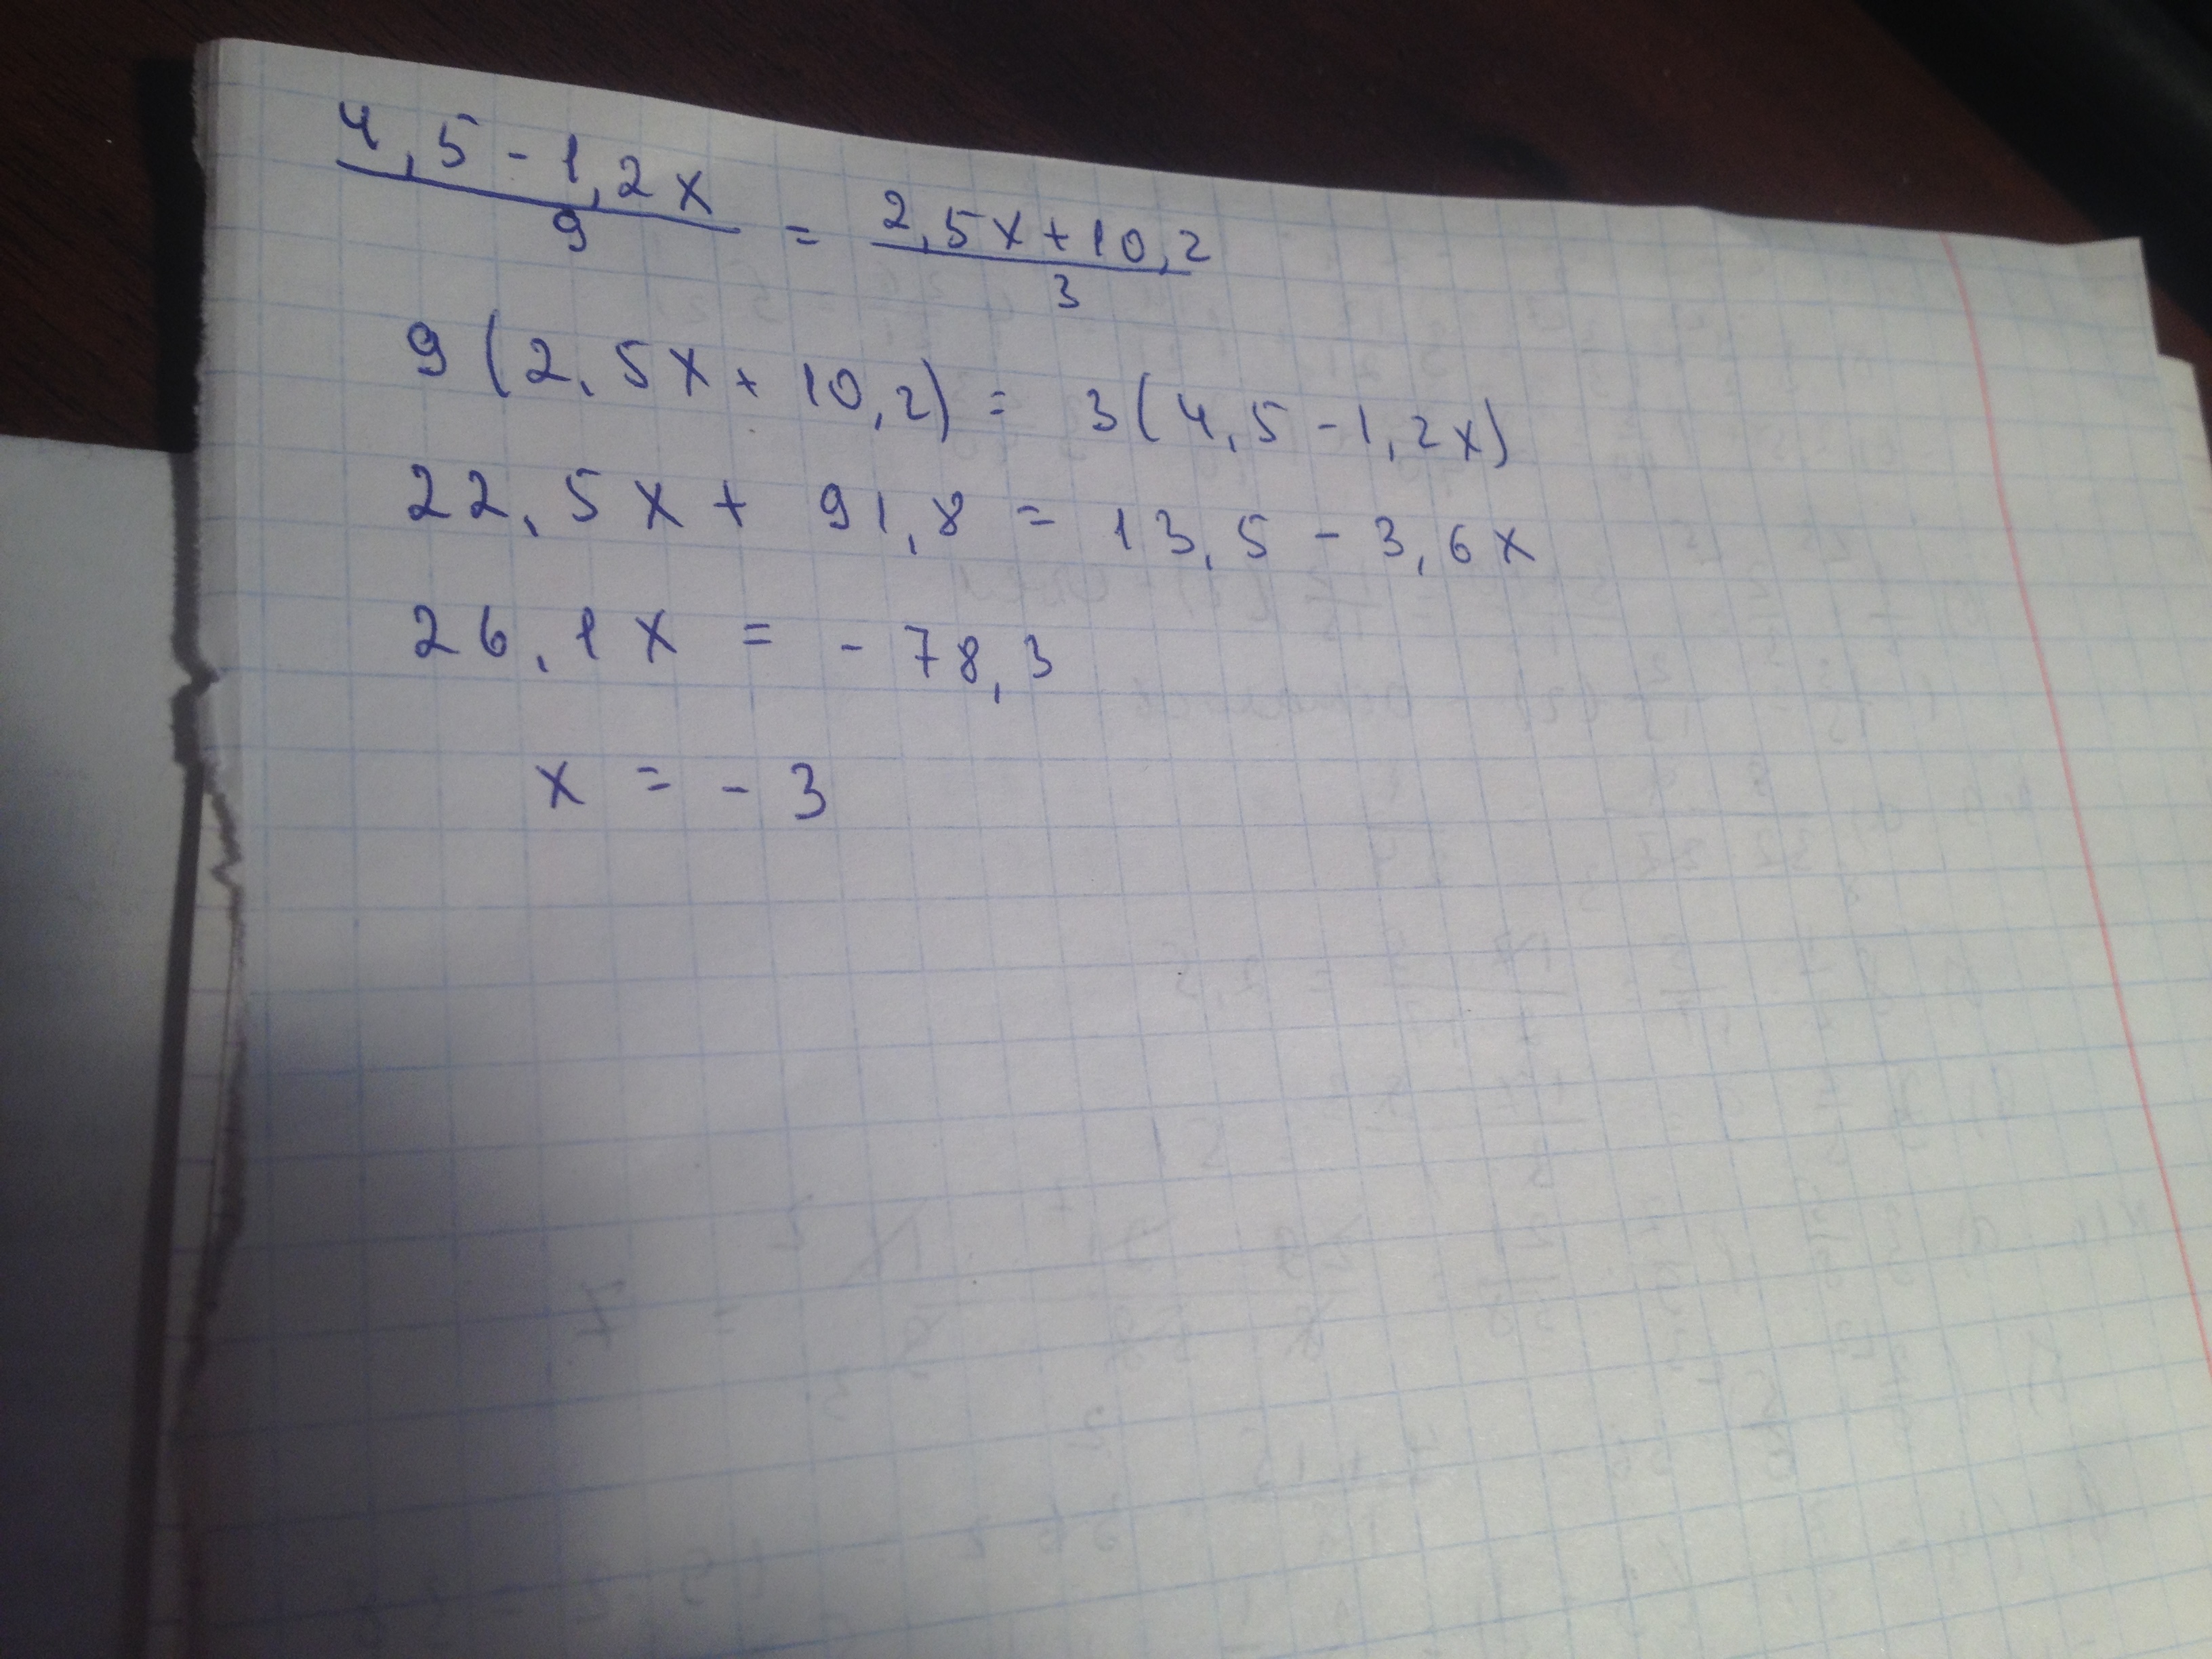 4,5 - 1,2x / 9 = 2,5x + 10,2 / 3
9(2,5x + 10,2) = 3(4,5 - 1,2x)
22,5x + 91,8 = 13,5 - 3,6x
26,1x = - 78,3
x = - 3